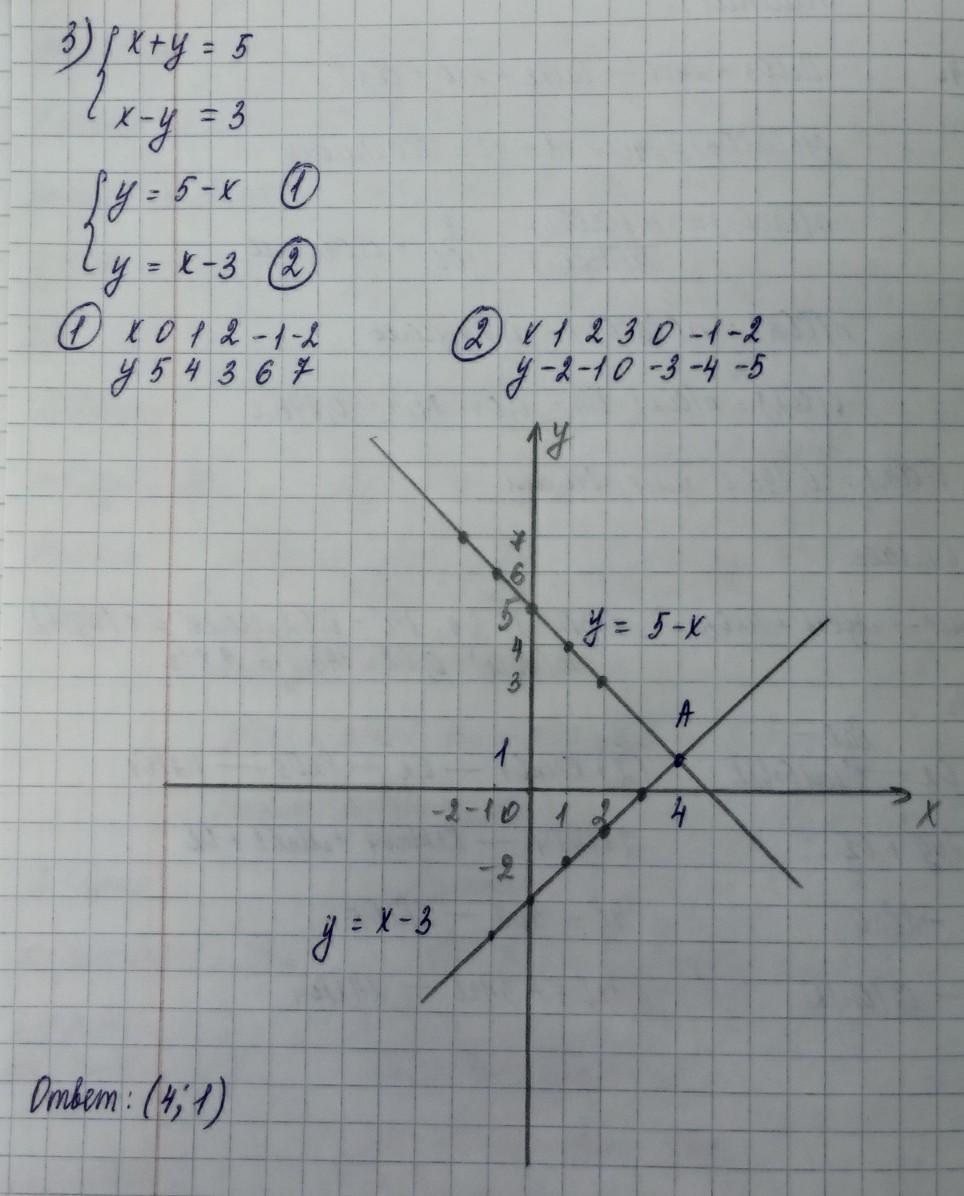 3) { x+y = 5
x-y = 3
{ y = 5-x ①
y = x-3 ②
① x 0 1 2 -1 -2
y 5 4 3 6 7
② x 1 2 3 0 -1 -2
y -2 -1 0 -3 -4 -5
y
7
6
5
y = 5-x
4
3
A
1
-2 -1 0 1 2 4 x
-2
y = x-3
Ответ: (4; 1)